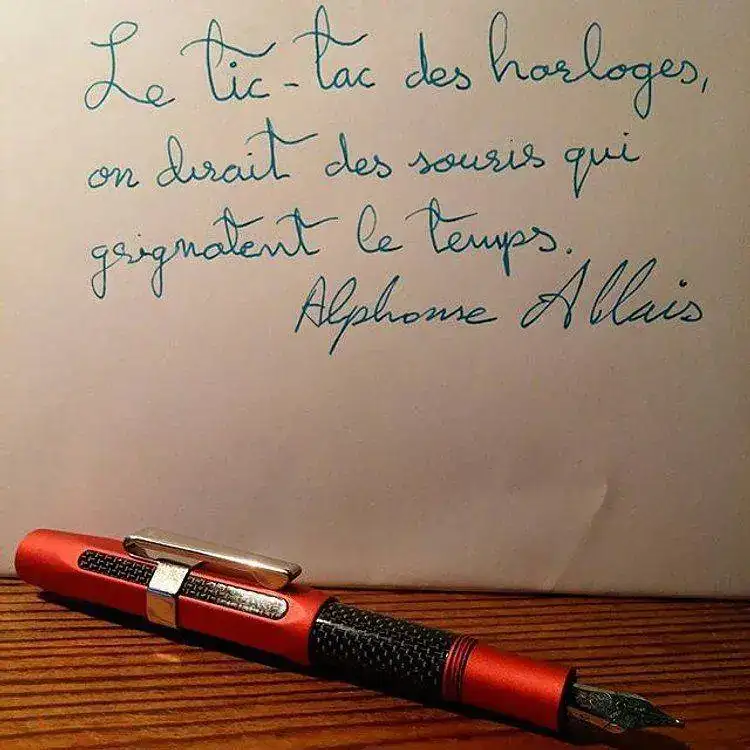 Le tic-tac des horloges,
on dirait des souris qui
grignotent le temps.
Alphonse Allais